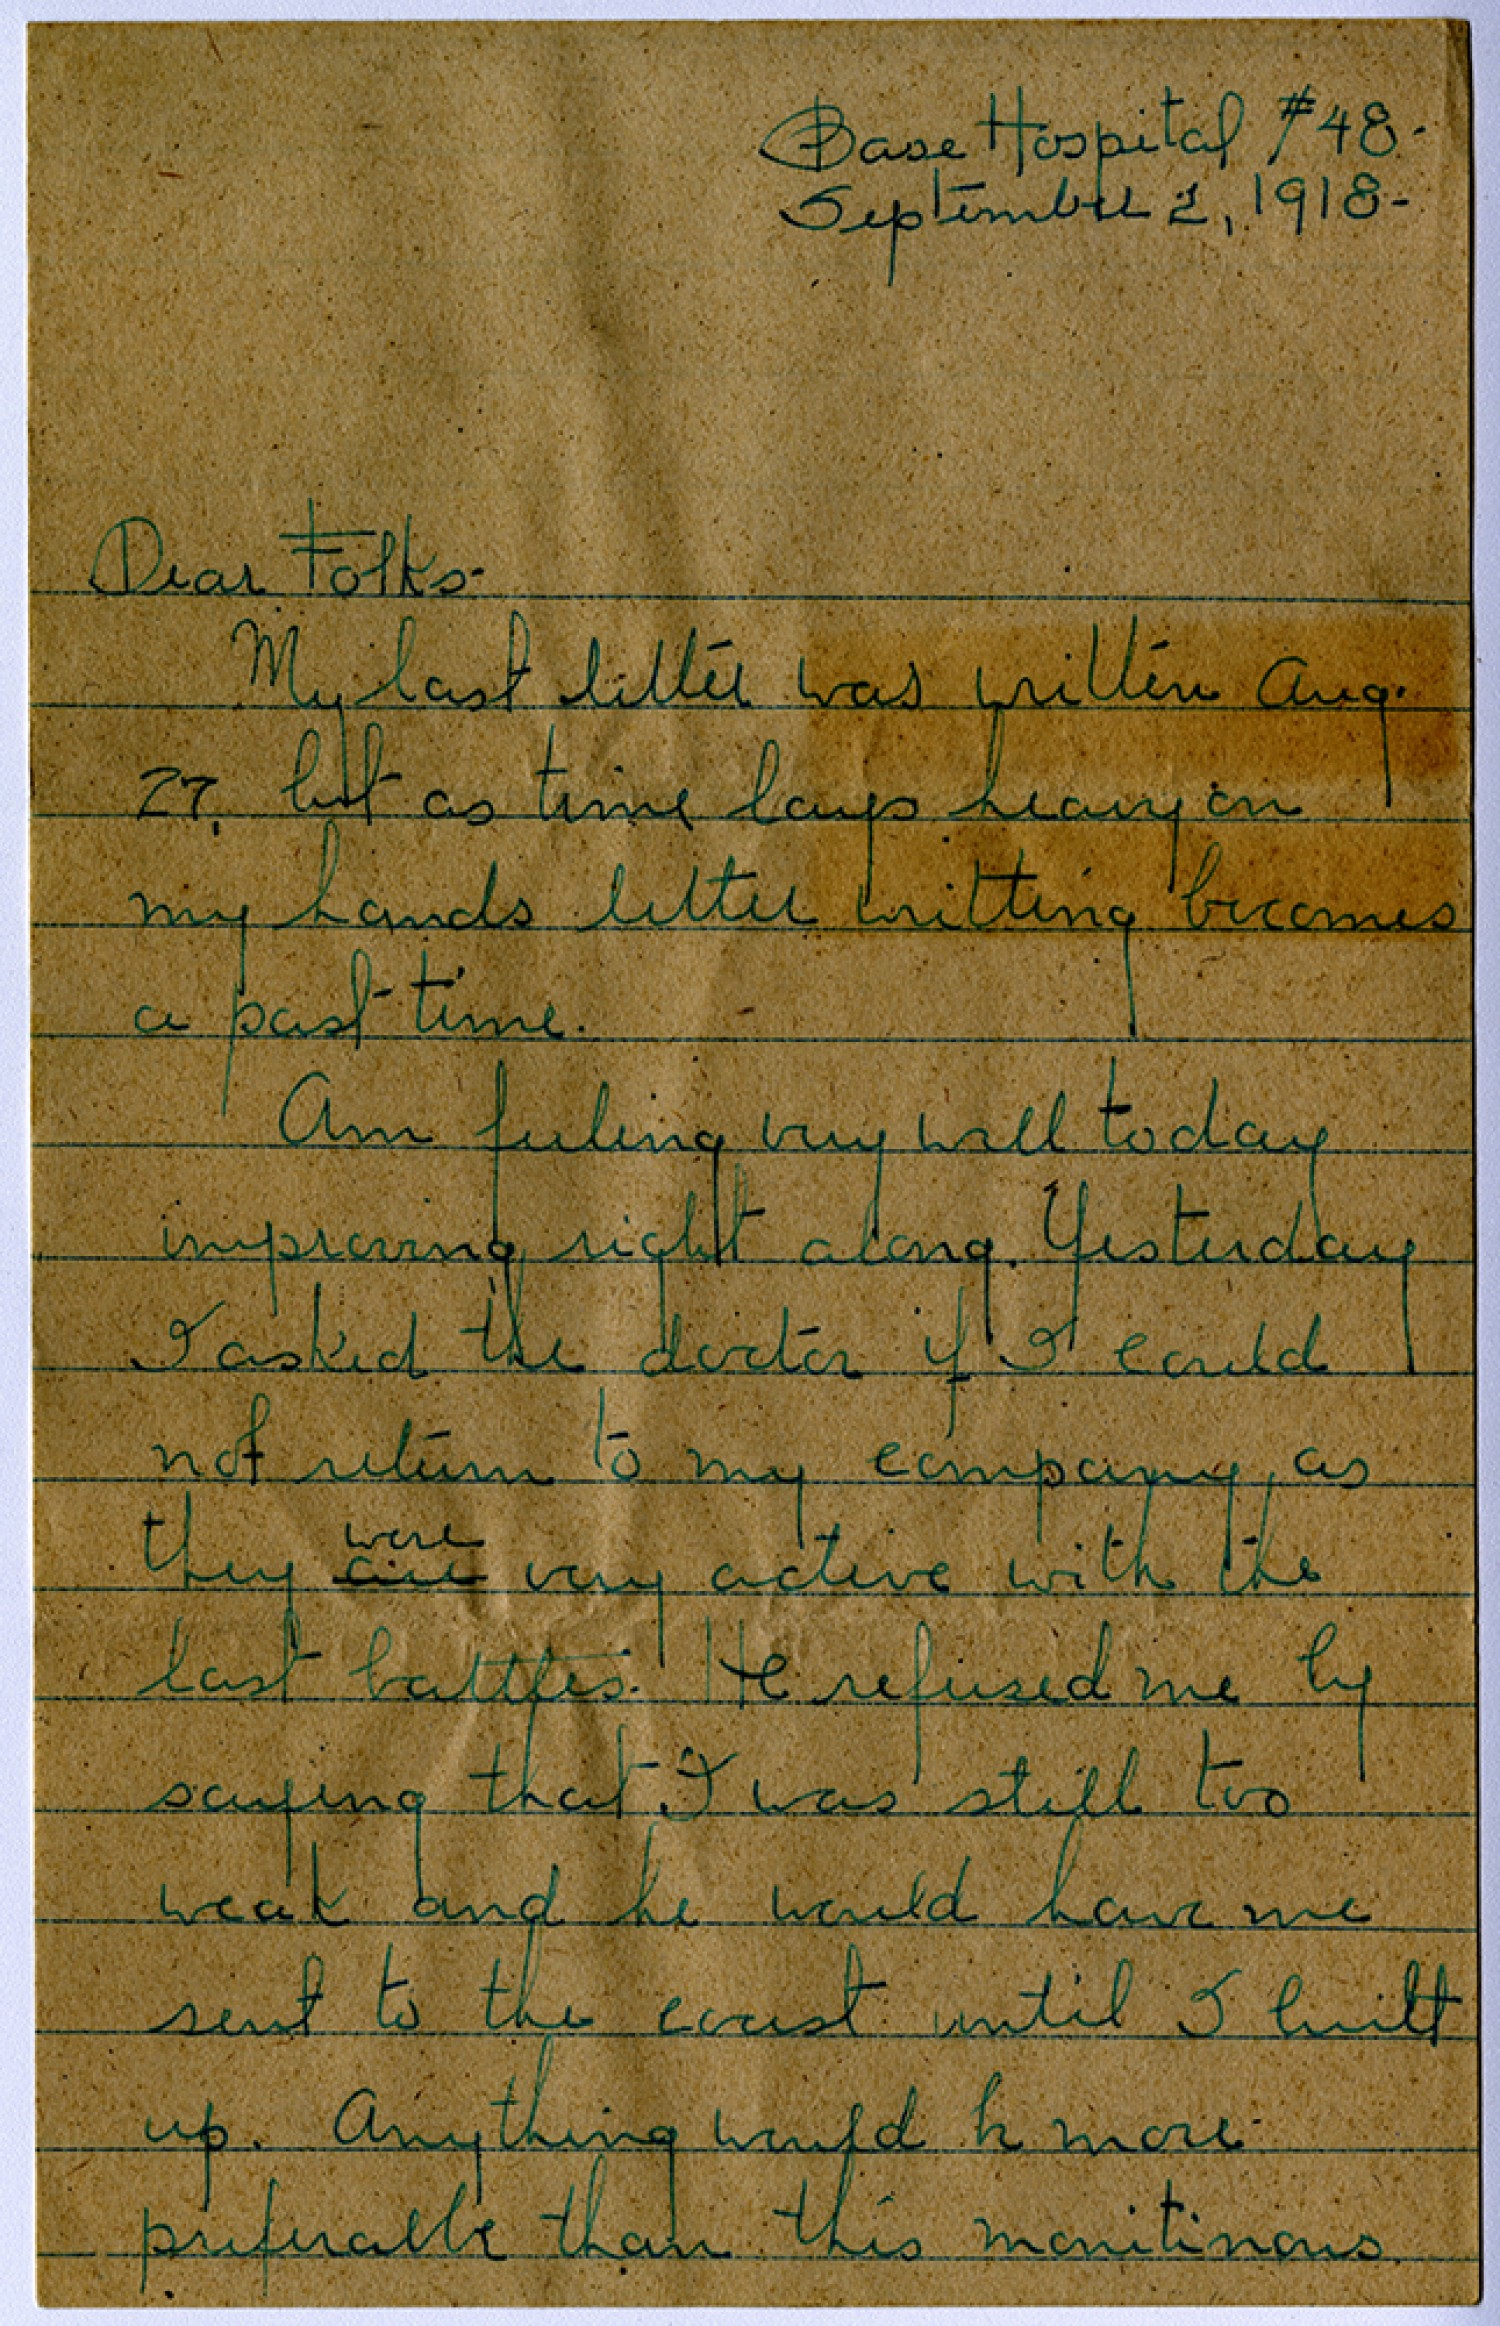 Base Hospital #48-
September 2, 1918-
Dear Folks-
My last letter was written Aug.
27, but as time lays heavy on
my hands letter writting becomes
a past-time.
Am feeling very well today
improving right along. Yesterday
I asked the doctor if I could
not return to my company, as
they were are very active with the
last battles. He refused me by
saying that I was still too
weak and he would have me
sent to the coast until I built
up. Anything would be more
preferable than this monitinous